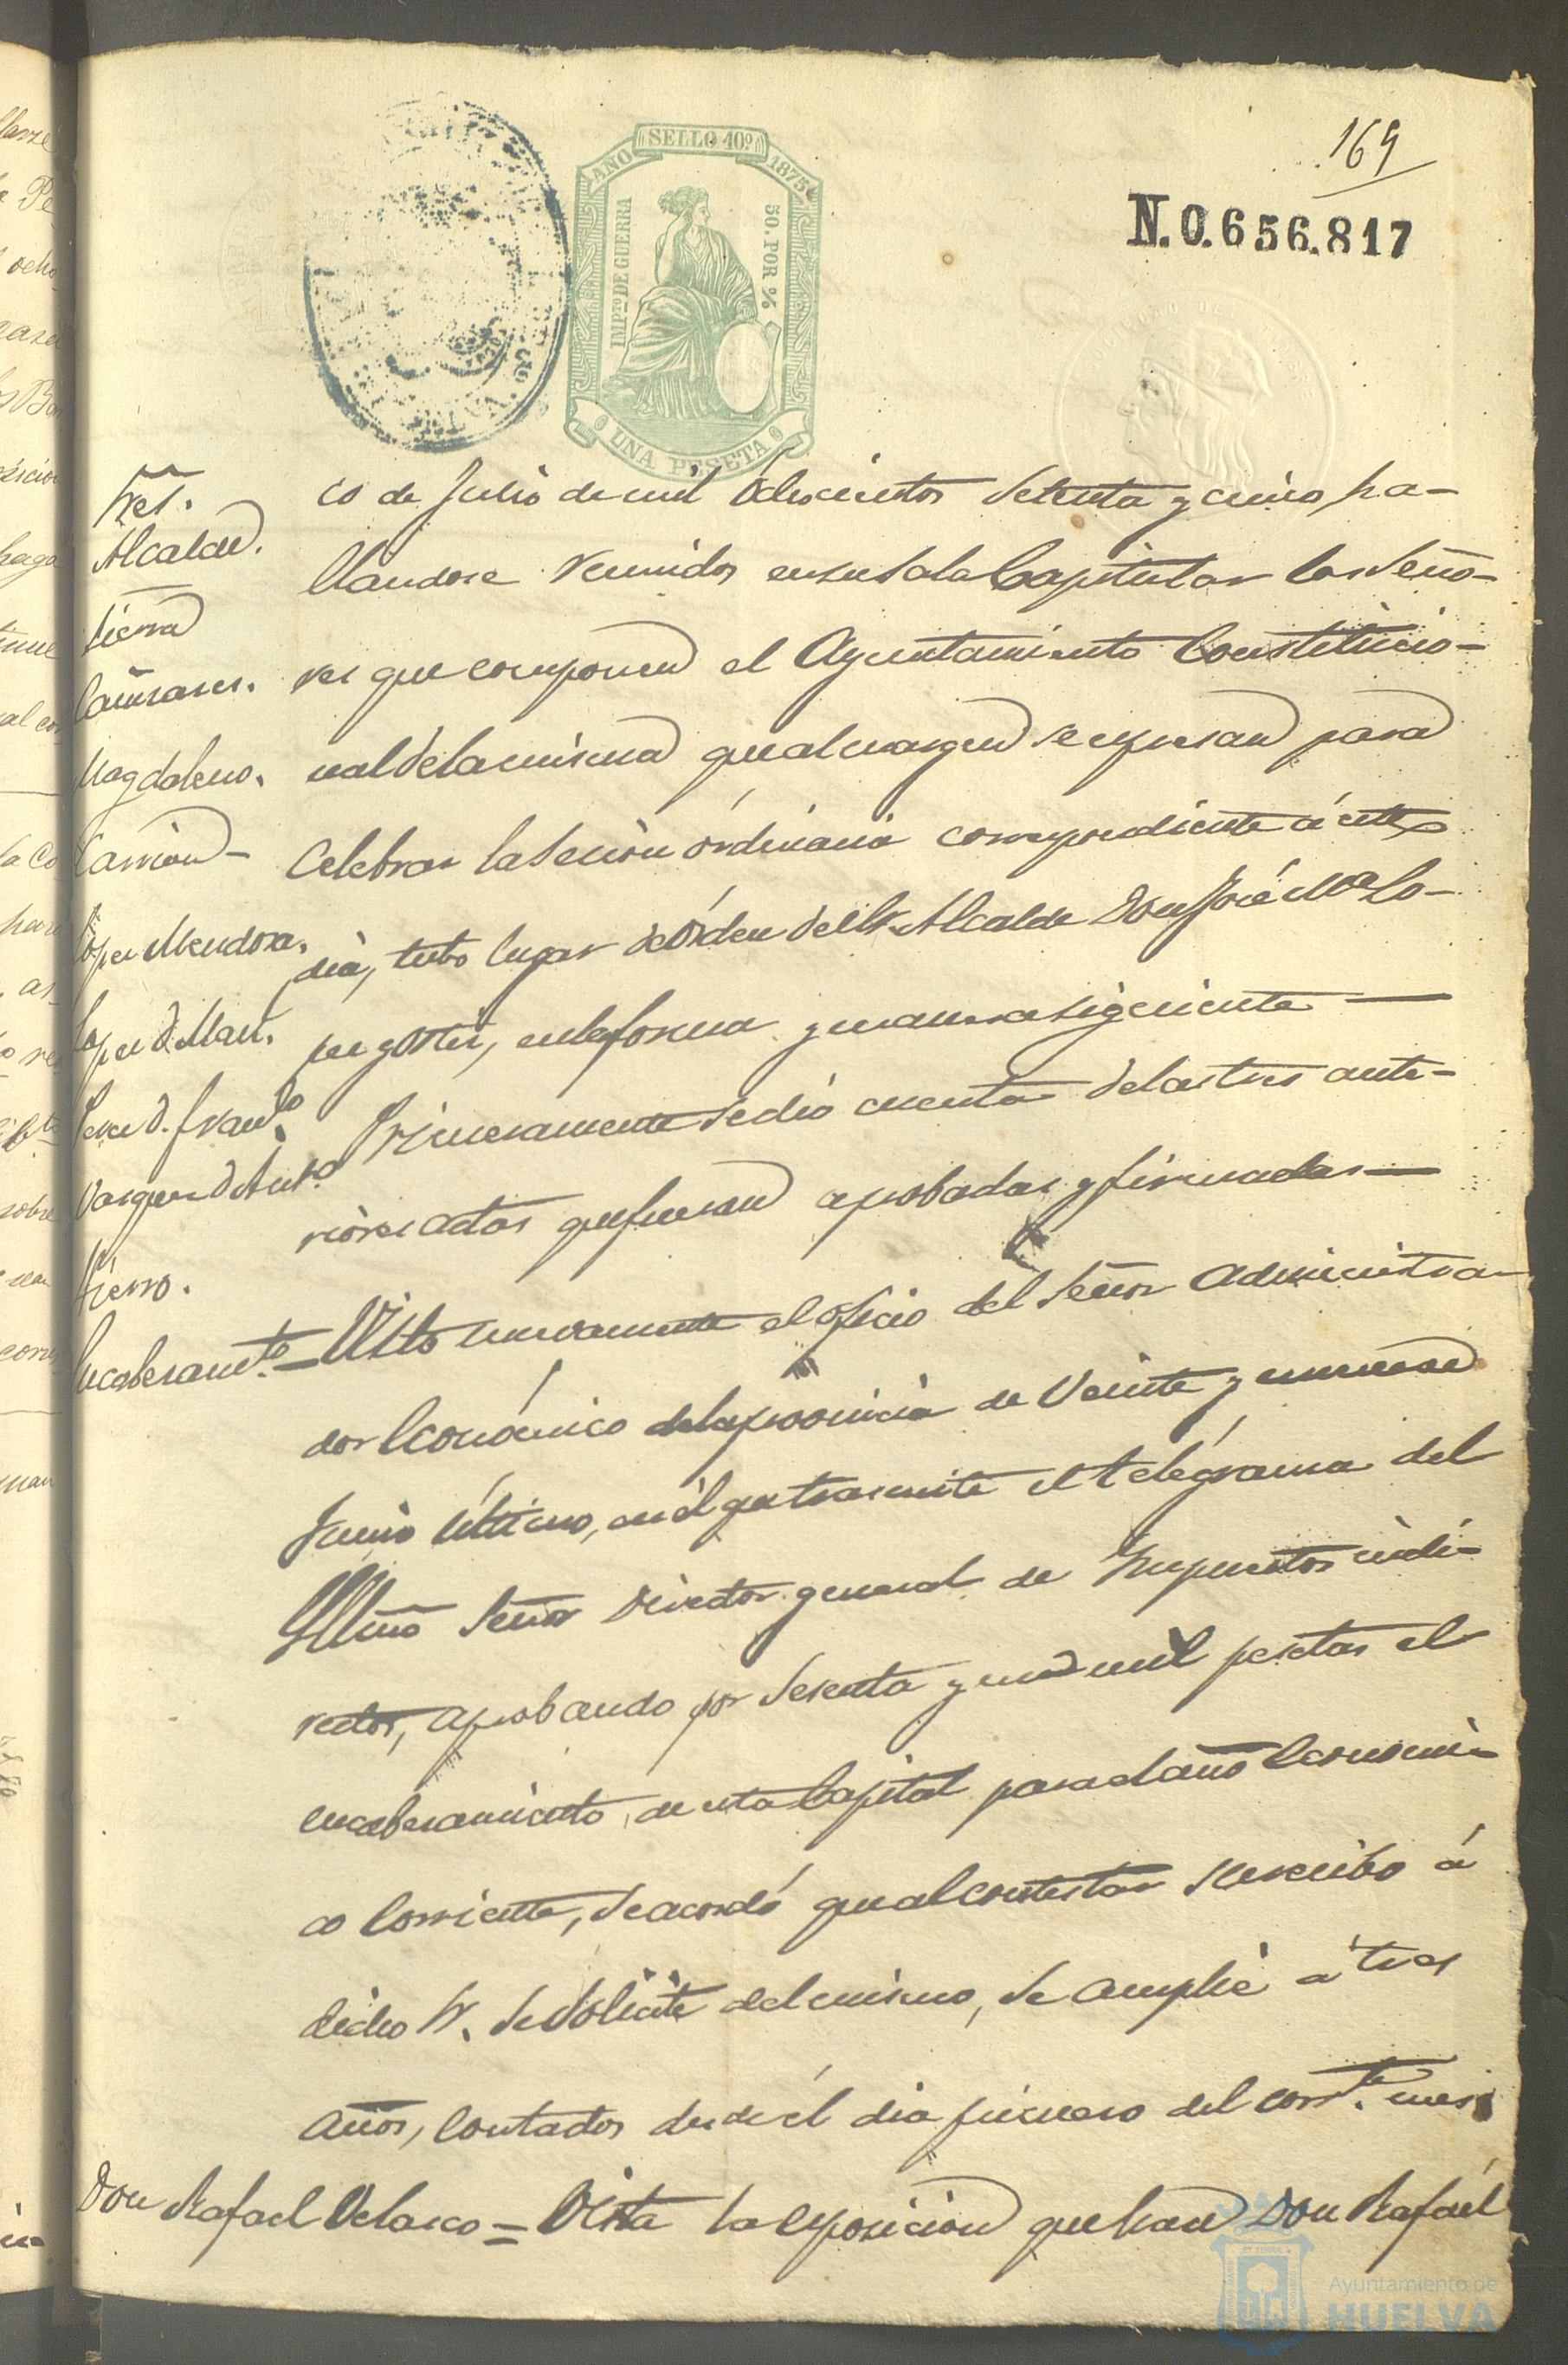 169
N. 0.656.817
AÑO SELLO 10º 1875
IMPTO DE GUERRA
50. POR %
UNA PESETA
Sres.
Alcalde.
Sierra
Cañizares.
Magdaleno.
Carrion
Lopez Mendoza.
Lopez D. Man.
Perez D. Franco.
Vazquez D. Anto.
Fierro.
co de Julio de mil Ochocientos Setenta y cinco, ha-
llandose reunidos en su Sala Capitular los Seño-
res que componen el Ayuntamiento Constitucio-
nal de la misma que al margen se expresan para
Celebrar la Sesion órdinaria correspondiente á este
dia, tubo lugar de Orden del Sr. Alcalde Don José Ma Lo-
pez y Ortiz, en la forma y manera siguiente
Primeramente Se dió cuenta de las tres ante-
riores actas que fueron aprobadas y firmadas
Encabezamto. = Visto nuevamente el oficio del Señor Administra-
dor Económico de la provincia de Veinte y nueve de
Junio último, en él que trascribe el telégrama del
Illmo Señor Director general de Impuestos indi-
rectos, aprobando por Sesenta y un mil pesetas el
encabezamiento de esta Capital para el año Económi-
co Corriente, Se acordó que al contestar su recibo á
dicho Sr. Se Solicite del mismo, Se amplie á tres
años, Contados desde él dia primero del corrte. mes
Don Rafael Velasco = Vista la exposicion que hace Don Rafaél
Ayuntamiento de
HUELVA